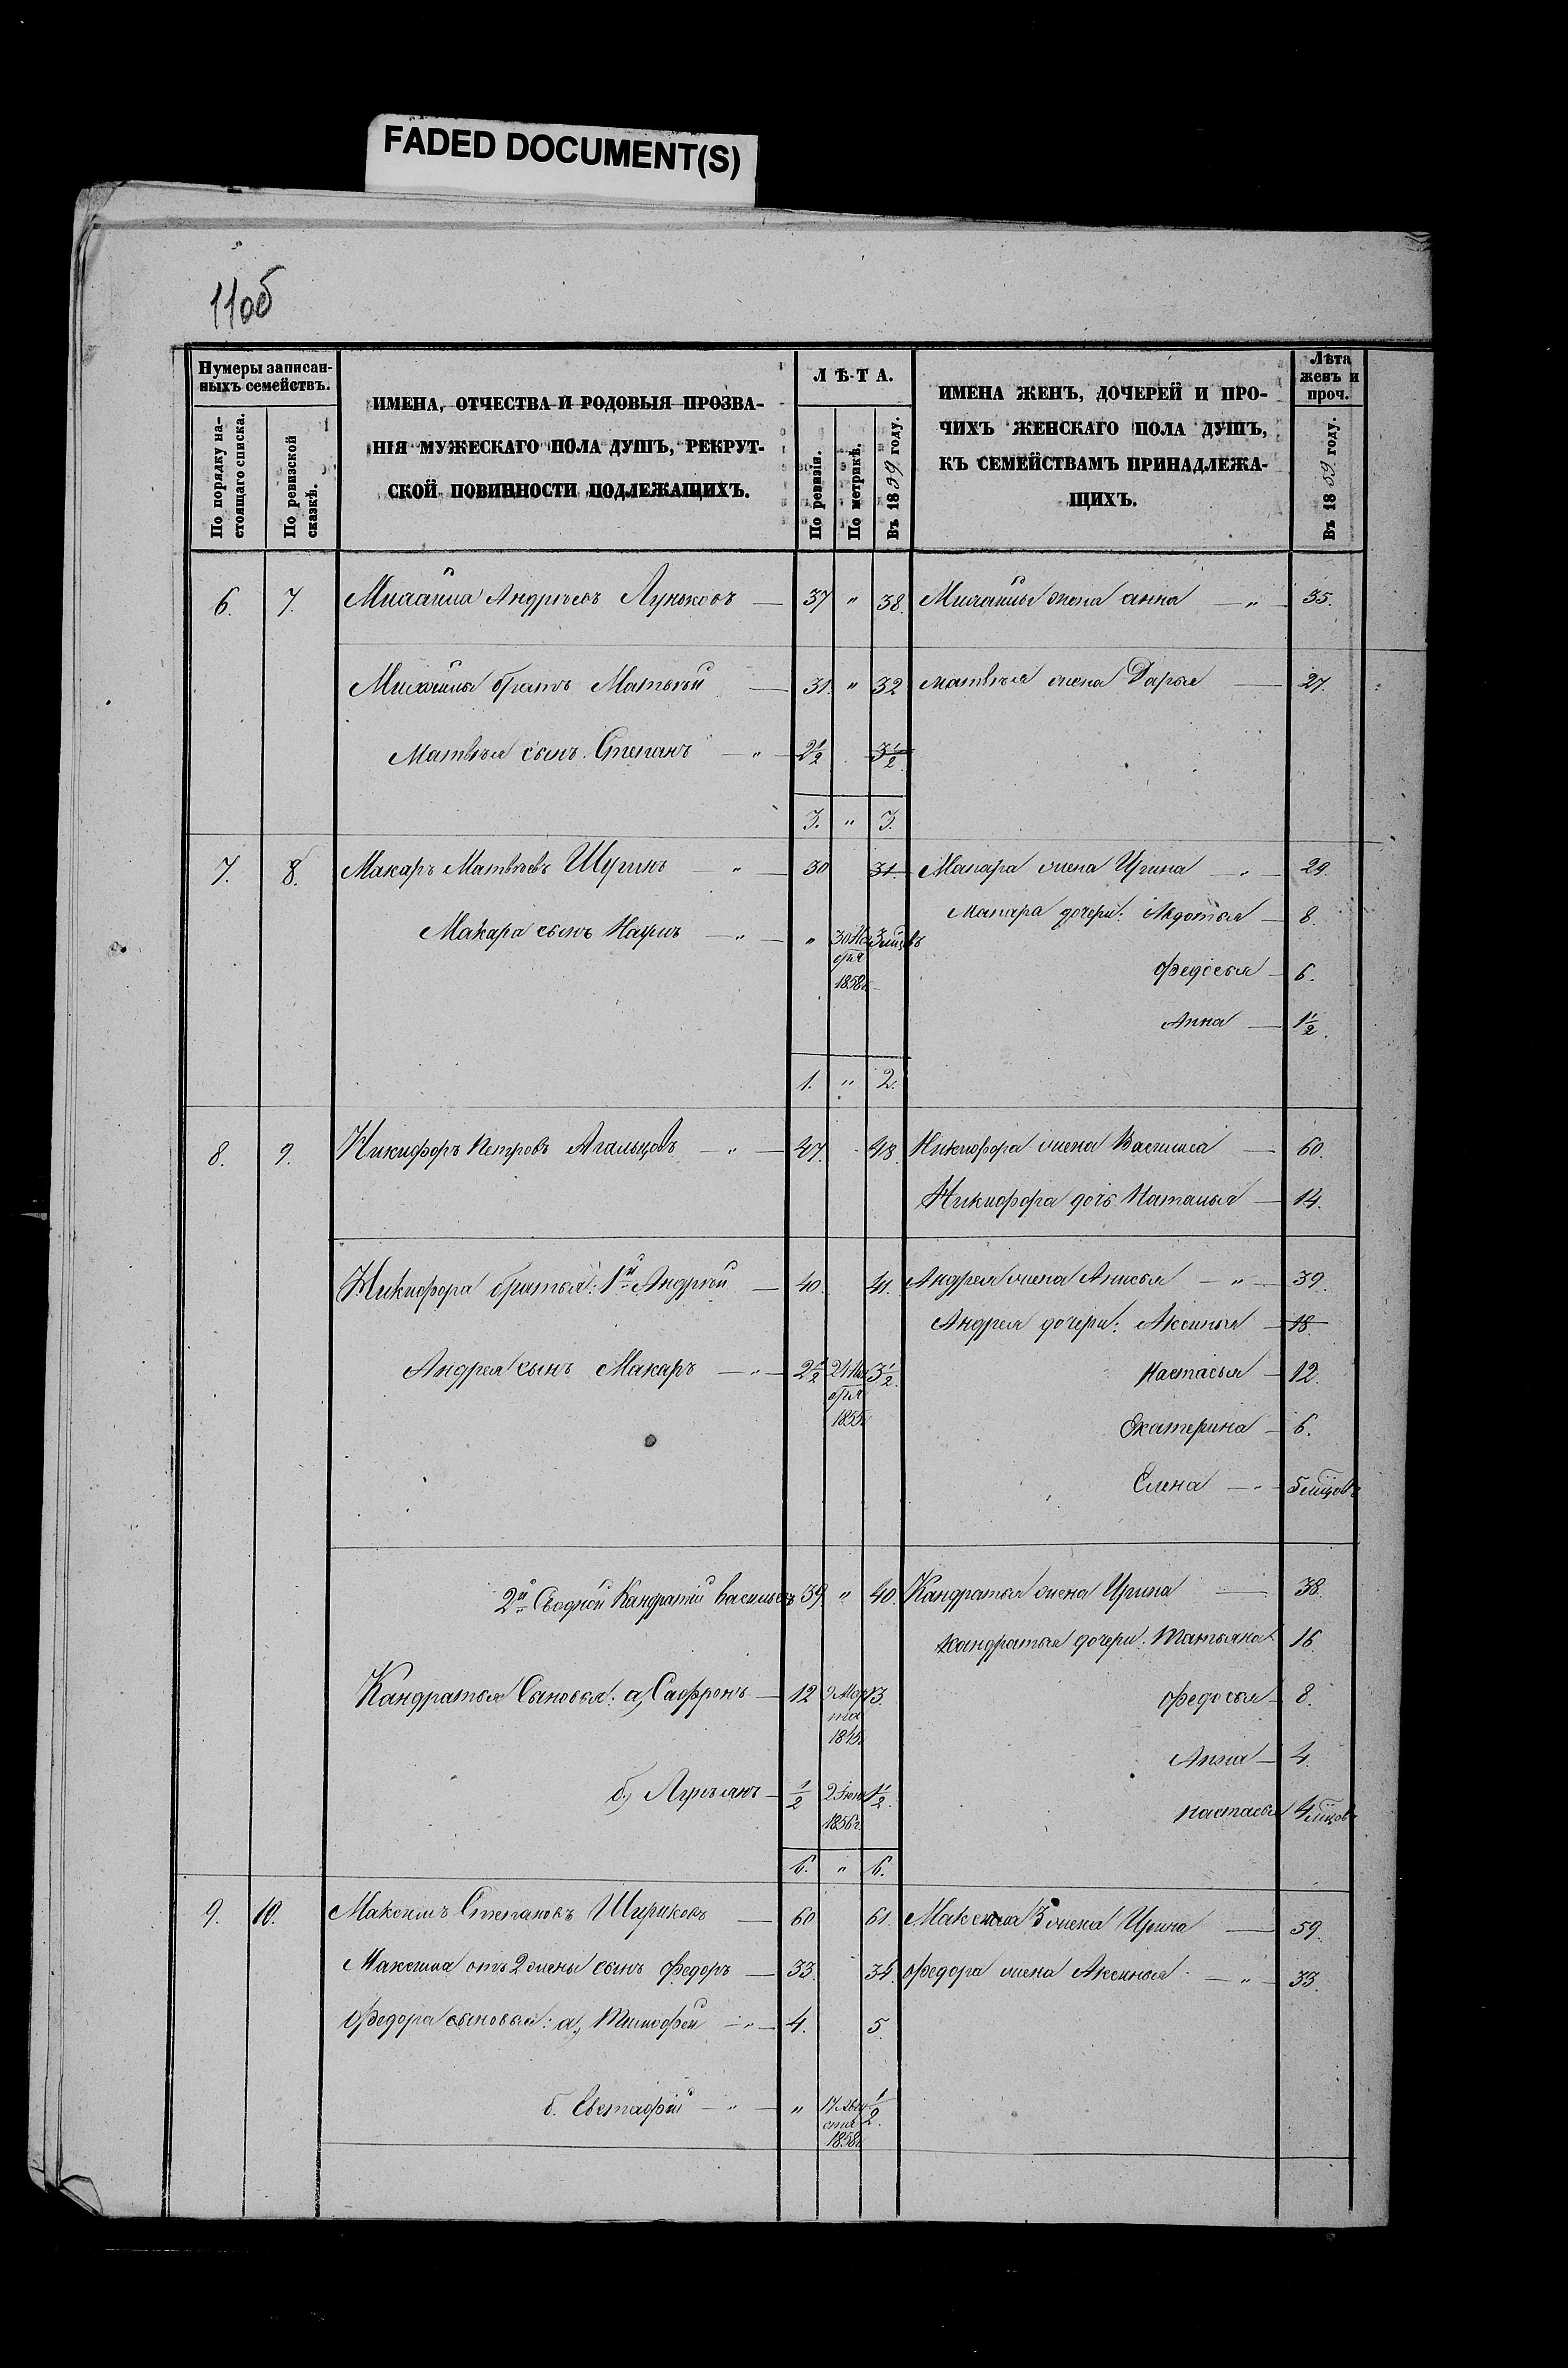 FADED DOCUMENT(S)
11об
Нумеры записан-
ныхъ семействъ.
По порядку на-
стоящаго списка.
По ревизской
сказкѣ.
ИМЕНА, ОТЧЕСТВА И РОДОВЫЯ ПРОЗВА-
НІЯ МУЖЕСКАГО ПОЛА ДУШЪ, РЕКРУТ-
СКОЙ ПОВИННОСТИ ПОДЛЕЖАЩИХЪ.
ЛѢТА.
По ревизіи.
По метрикѣ.
Въ 1859 году.
ИМЕНА ЖЕНЪ, ДОЧЕРЕЙ И ПРО-
ЧИХЪ ЖЕНСКАГО ПОЛА ДУШЪ,
КЪ СЕМЕЙСТВАМЪ ПРИНАДЛЕЖА-
ЩИХЪ.
Лѣта
женъ и
проч.
Въ 1859 году.
6. 7. Михаила Андреевъ Луньковъ — 37 " 38. Михайлы жена анна — " 35.
Михайлы братъ Матвѣй — 31. " 32 матвѣя жена Дарья — 27.
Матвѣя сынъ Степанъ — " — 2½ 3½
3. " 3.
7. 8. Макаръ Матвѣевъ — " — 30 31. Макара жена Ирина — " — 29.
Макара сынъ Наумъ — " — " 30 Но 3 мцовъ Макара дочери: Авдотья — 8.
ября
1858г. Федосья — 6.
Анна — 1½.
1. " 2.
8. 9. Никифоръ Петровъ Агальцовъ — " — 47. 48. Никифора жена Василиса — 60.
Никифора дочь Наталья — 14.
Никифора братья: 1й Андрей — 40. 41. Андрея жена Анисья — " — 39.
Андрея дочери: Аксинья — 18.
Андрея сынъ Макаръ — " — 2½ 21 Но 3½. Настасья — 12.
ября
1855г. Екатерина — 6.
Елена — " — 5 мцовъ
2й Сводной Кандратій Васильевъ 39. " 40. Кандратья жена Ирина — 38.
Кандратья дочери: Татьяна 16.
Кандратья Сыновья: а, Сафронъ — 12 9 Мар 13. Федосья — 8.
та
1845г. Анна — 4.
б, Лукьянъ — ½ 2 Іюня 1½.
1856г. настасья 4 мцовъ
6. " 6.
9. 10. Максимъ Степановъ Шириковъ — 60 61. Максима 3 жена Ирина — 59.
Максима отъ 2 жены сынъ Федоръ — 33. 34. Федора жена Аксинья — " — 33.
Федора сыновья: а, Тимофей — " — 4. 5.
б. Евстафій — " — " 17 Авгу ½.
ста
1858г.